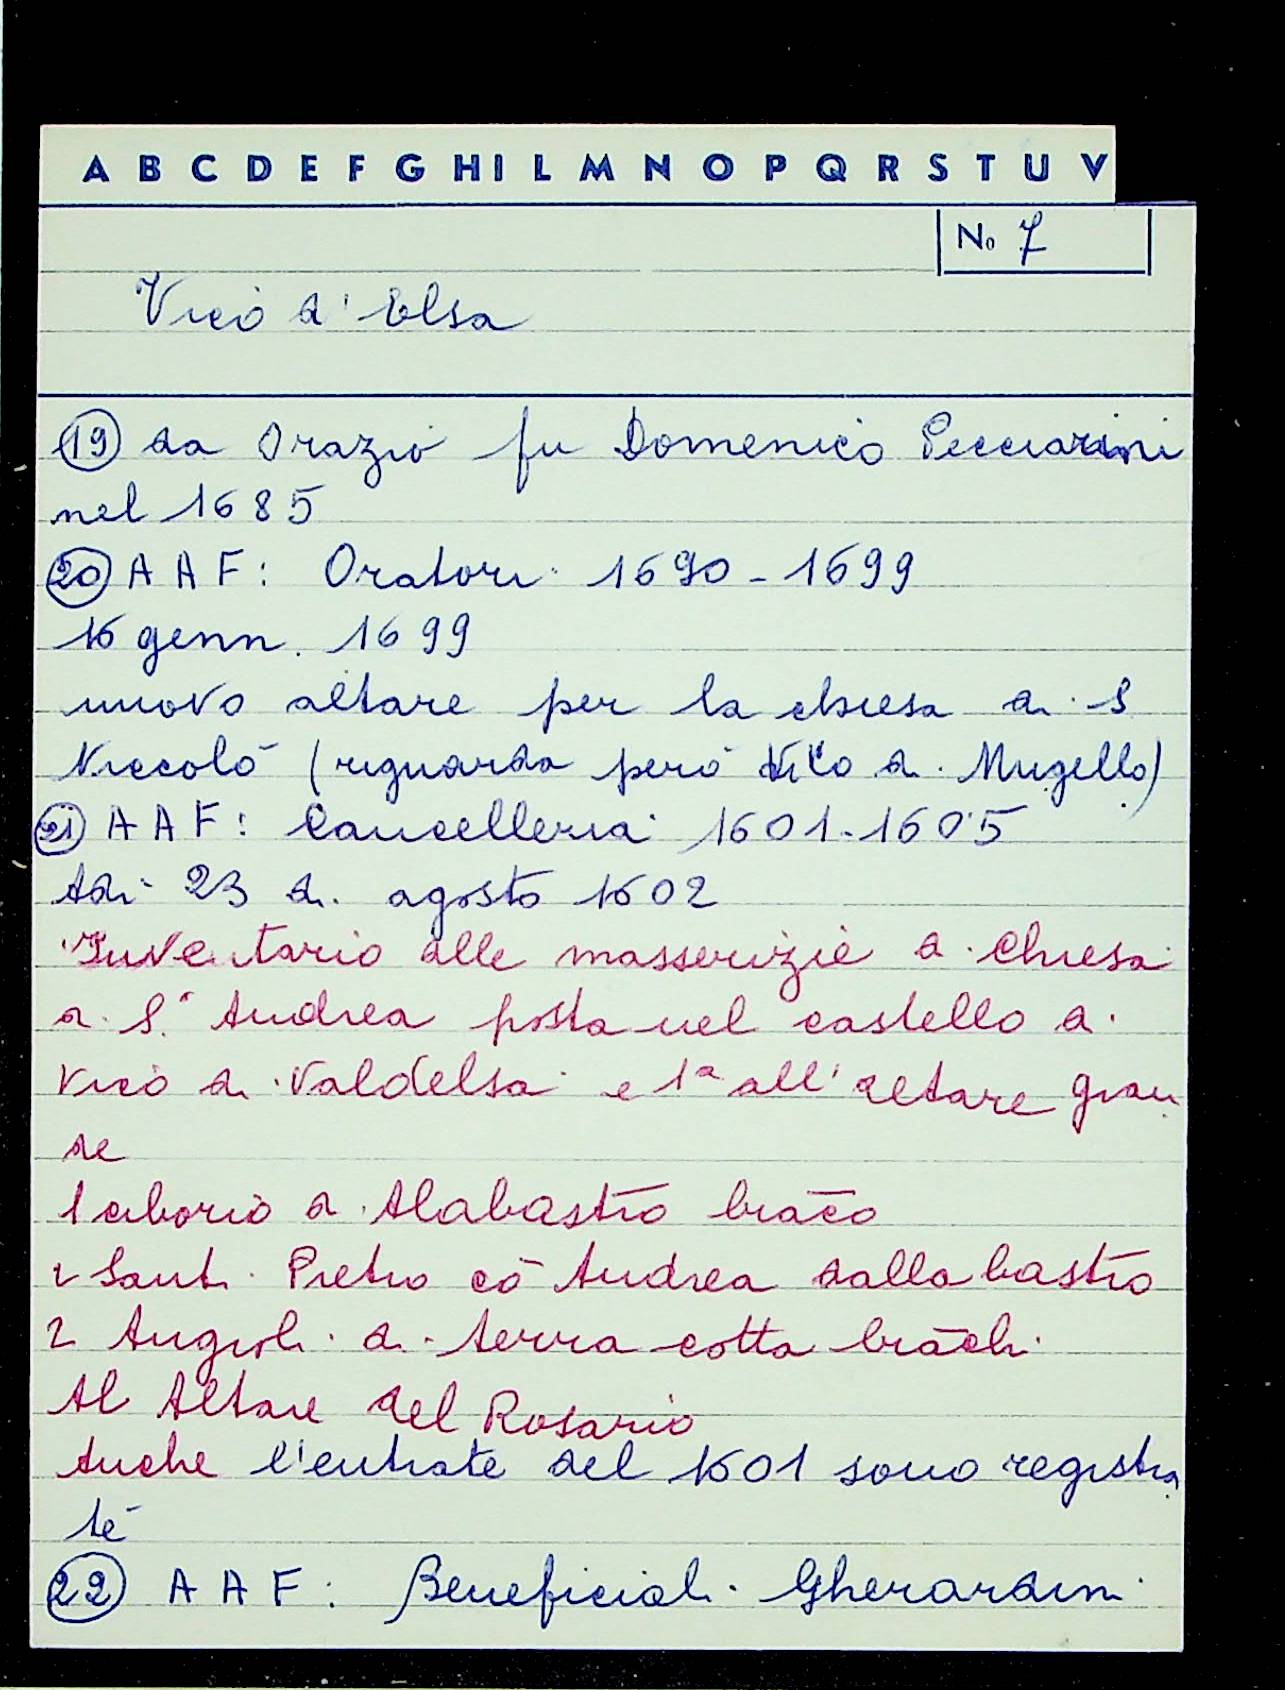 A B C D E F G H I L M N O P Q R S T U V
No 7
Vico d'Elsa
19 da Orazio fu Domenico Pecciarini
nel 1685
20 A A F: Oratori 1690-1699
16 genn. 1699
nuovo altare per la chiesa di S
Niccolò (riguarda però Vico di Mugello)
21 A A F: Cancelleria 1601-1605
Adi 23 di agosto 1602
Inventario alle masserizie di chiesa
di S. Andrea posta nel castello di
Vico di Valdelsa e 1ª all'altare gran
de
1 ciborio di Alabastro biāco
2 Santi Pietro cō Andrea dallabastro
2 Angioli di terra cotta biāchi
Al Altare del Rosario
Anche l'entrate del 1601 sono registra
te
22 A A F: Beneficiali Gherardini